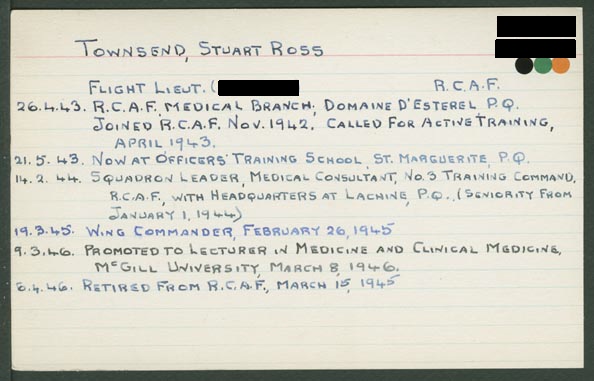 TOWNSEND, STUART ROSS
FLIGHT LIEUT. ( R.C.A.F.
26.4.43. R.C.A.F. MEDICAL BRANCH, DOMAINE D'ESTEREL P.Q.
JOINED R.C.A.F. NOV. 1942. CALLED FOR ACTIVE TRAINING,
APRIL 1943.
21.5.43. NOW AT OFFICERS' TRAINING SCHOOL, ST. MARGUERITE, P.Q.
14.2.44. SQUADRON LEADER, MEDICAL CONSULTANT, NO. 3 TRAINING COMMAND,
R.C.A.F., WITH HEADQUARTERS AT LACHINE, P.Q., (SENIORITY FROM
JANUARY 1, 1944)
19.3.45. WING COMMANDER, FEBRUARY 26, 1945
9.3.46. PROMOTED TO LECTURER IN MEDICINE AND CLINICAL MEDICINE,
MCGILL UNIVERSITY, MARCH 8, 1946.
6.4.46. RETIRED FROM R.C.A.F., MARCH 15, 1945